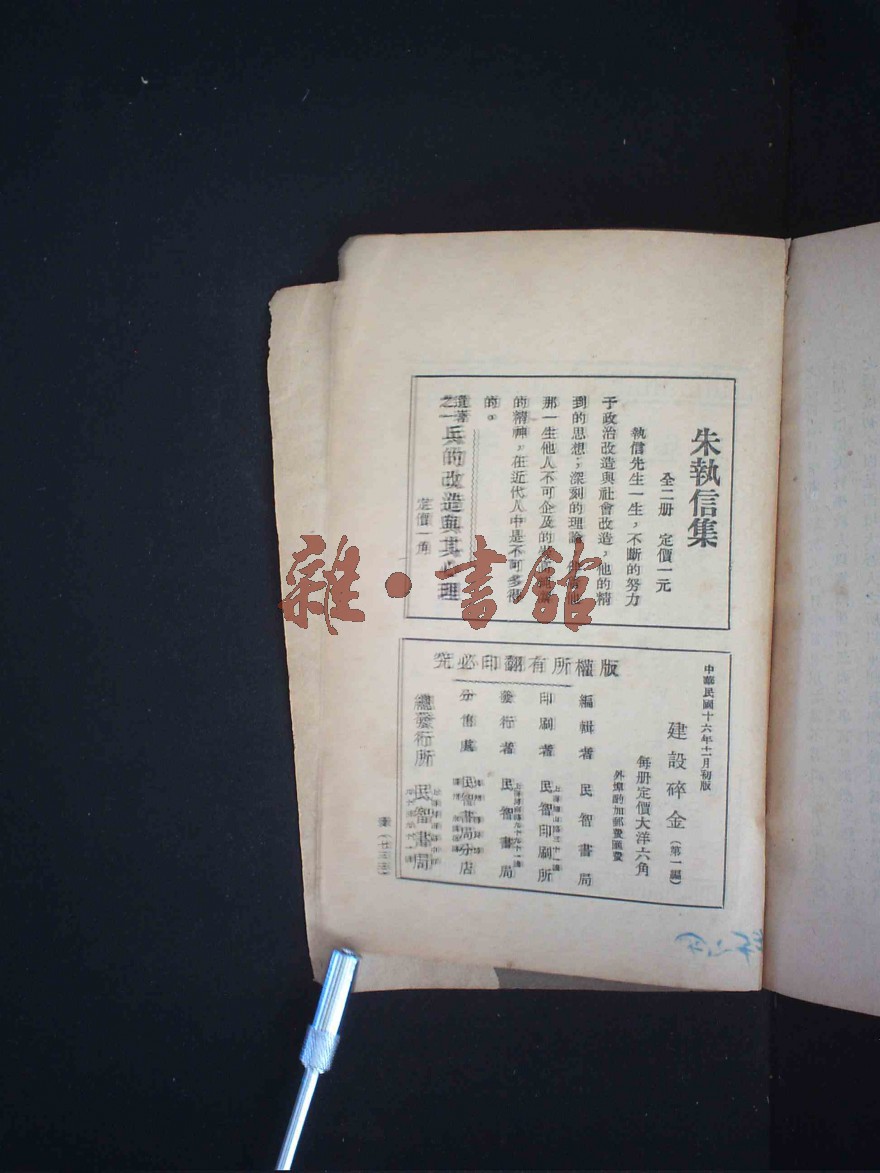 朱執信集
全二册 定價一元
執信先生一生，不斷的努力
于政治改造與社會改造，他的精
到的思想，深刻的理論
那一生他人不可企及的
的精神，在近代人中是不可多得
的。
遺著之一 兵的改造與其心理
定價一角
中華民國十六年十一月初版
建設碎金（第一編）
每册定價大洋六角
外埠酌加郵費匯費
版權所有翻印必究
編輯者 民智書局
印刷者 民智印刷所
發行者 民智書局
分售處 民智書局分店
總發行所 民智書局
雜·書館